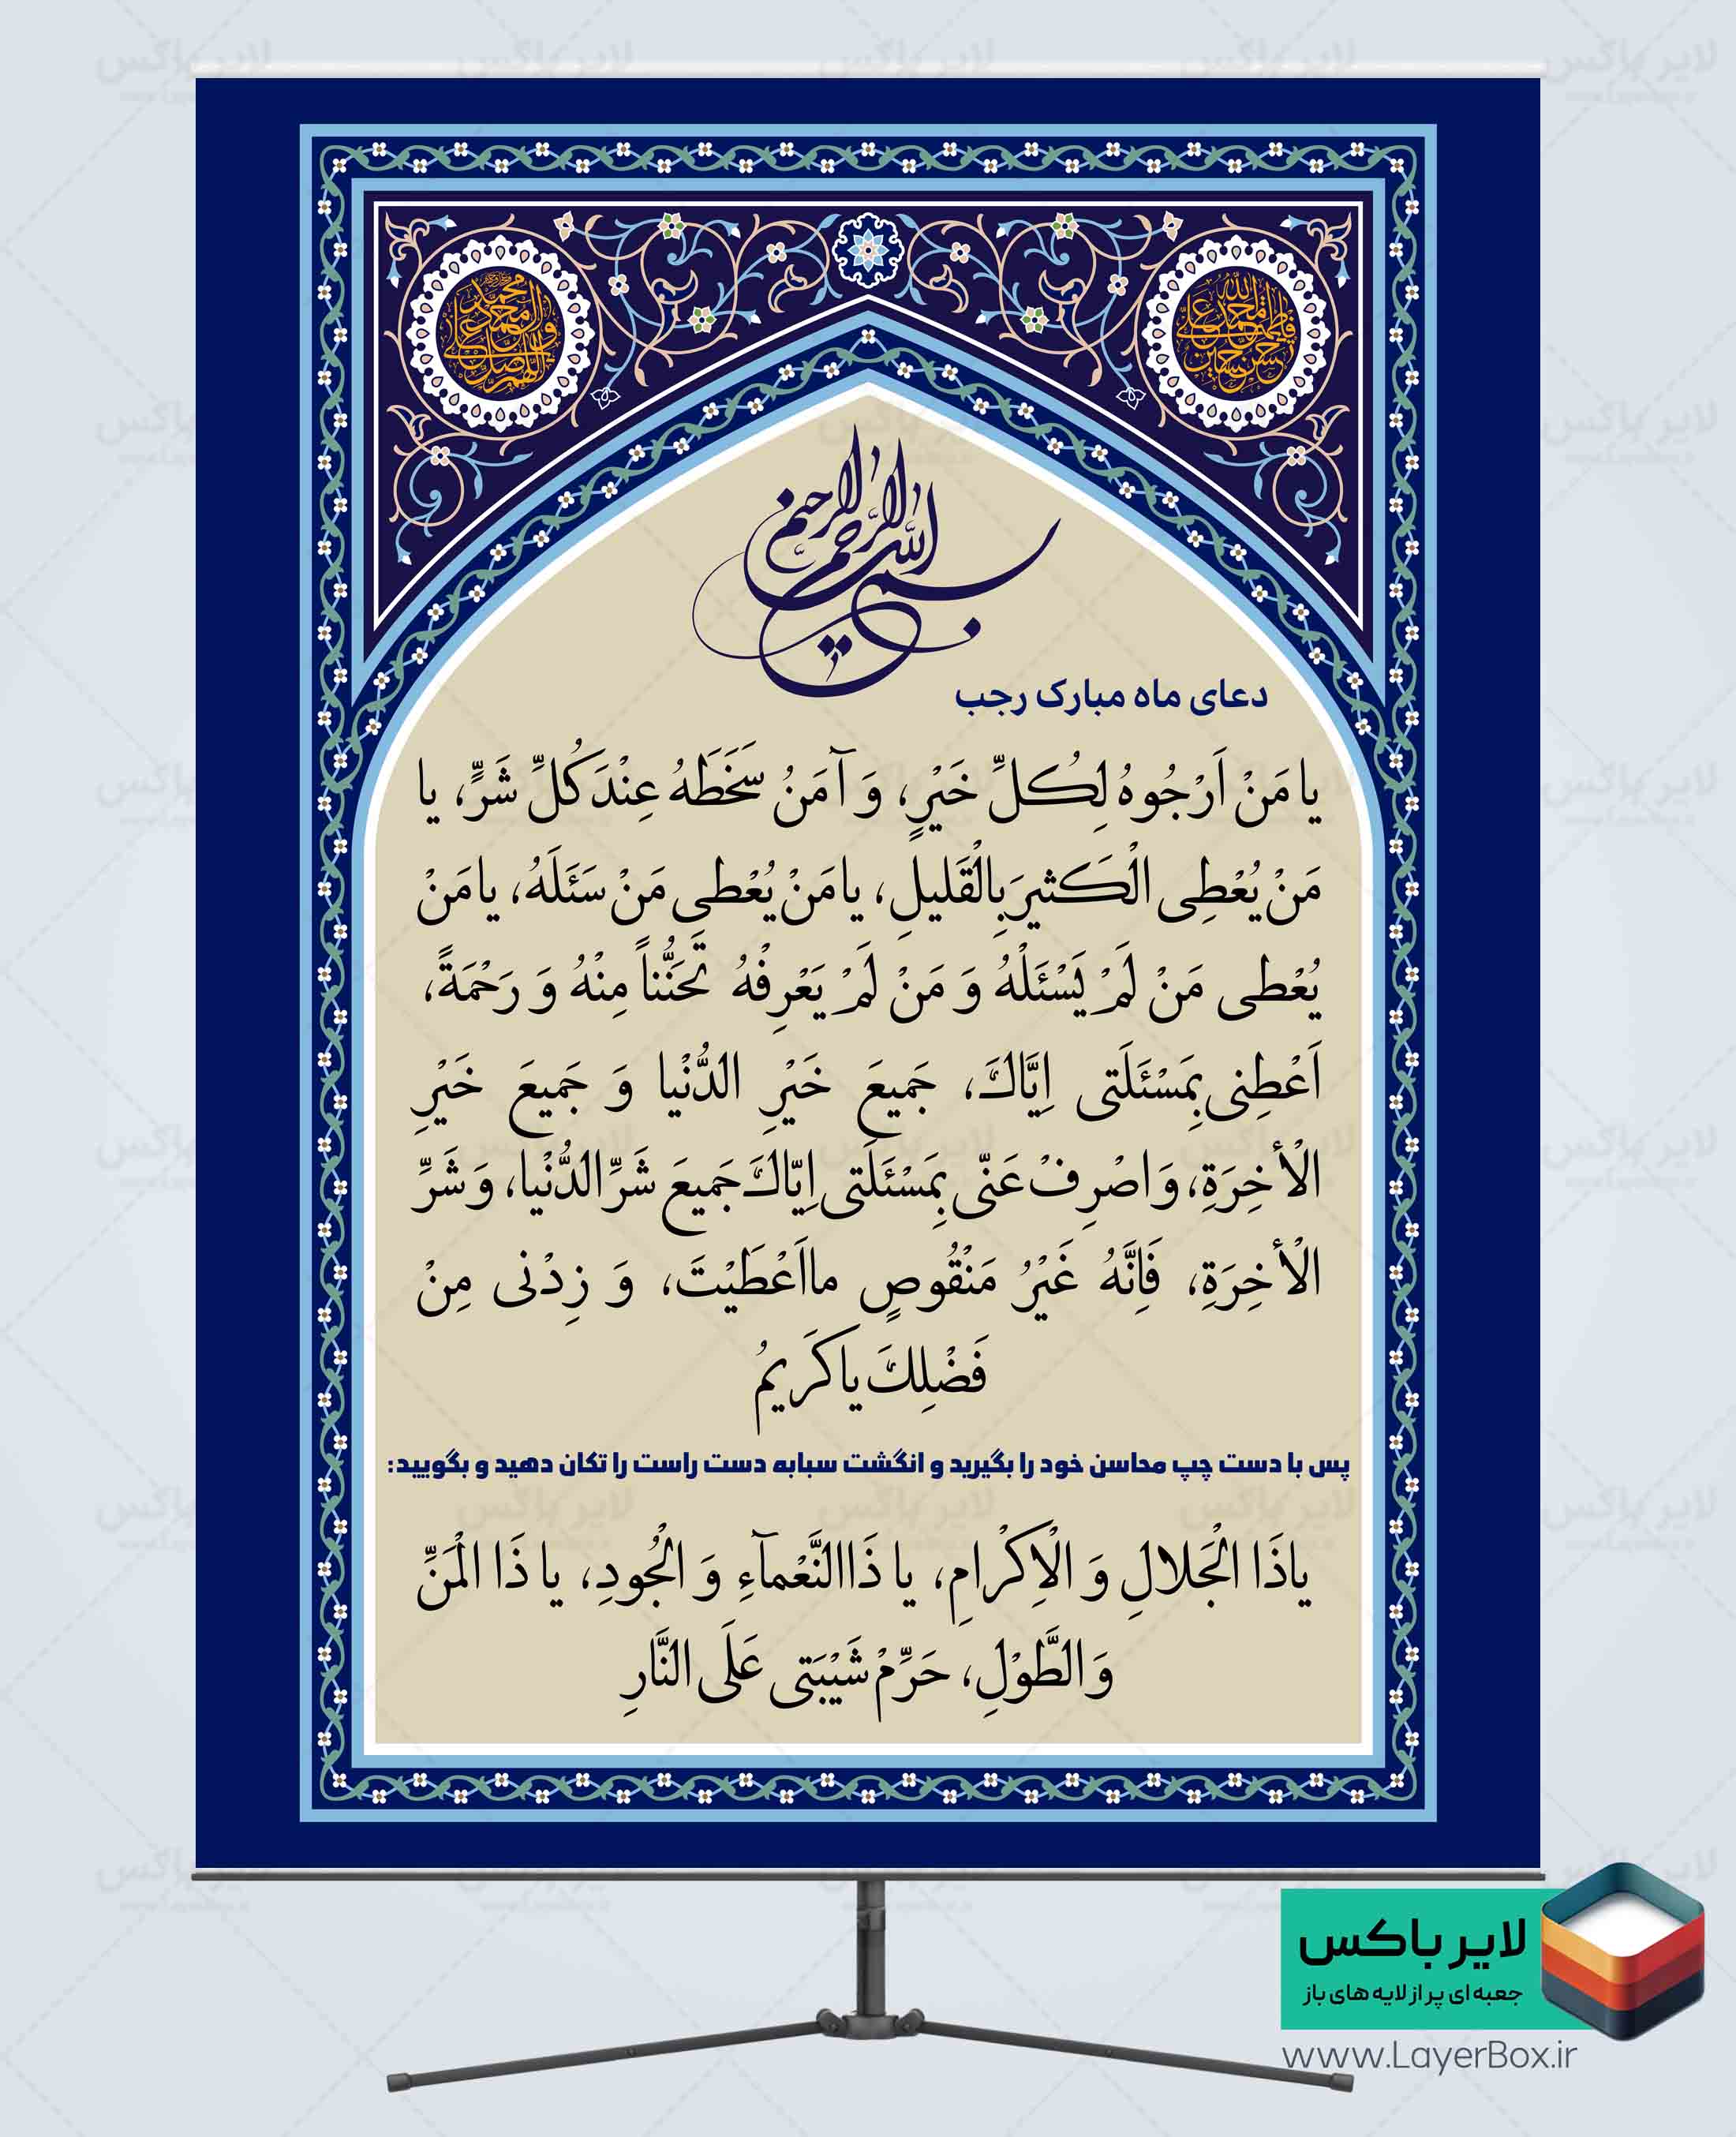 بسم الله الرحمن الرحیم
دعای ماه مبارک رجب
یا مَنْ اَرْجُوهُ لِکُلِّ خَیْرٍ، وَ آمَنُ سَخَطَهُ عِنْدَ کُلِّ شَرٍّ، یا
مَنْ یُعْطِی الْکَثیرَ بِالْقَلیلِ، یا مَنْ یُعْطی مَنْ سَئَلَهُ، یا مَنْ
یُعْطی مَنْ لَمْ یَسْئَلْهُ وَ مَنْ لَمْ یَعْرِفْهُ تَحَنُّناً مِنْهُ وَ رَحْمَةً،
اَعْطِنی بِمَسْئَلَتی اِیَّاكَ، جَمیعَ خَیْرِ الدُّنْیا وَ جَمیعَ خَیْرِ
الْأخِرَةِ، وَ اصْرِفْ عَنّی بِمَسْئَلَتی اِیّاكَ جَمیعَ شَرِّ الدُّنْیا، وَ شَرِّ
الْأخِرَةِ، فَاِنَّهُ غَیْرُ مَنْقُوصٍ مااَعْطَیْتَ، وَ زِدْنی مِنْ
فَضْلِكَ یا کَریمُ
پس با دست چپ محاسن خود را بگیرید و انگشت سبابه دست راست را تکان دهید و بگویید:
یاذَا الْجَلالِ وَ الْاِکْرامِ، یا ذَاالنَّعْمآءِ وَ الْجُودِ، یا ذَا الْمَنِّ
وَ الطَّوْلِ، حَرِّمْ شَیْبَتی عَلَی النَّارِ
لایر باکس
جعبه ای پر از لایه های باز
www.LayerBox.ir